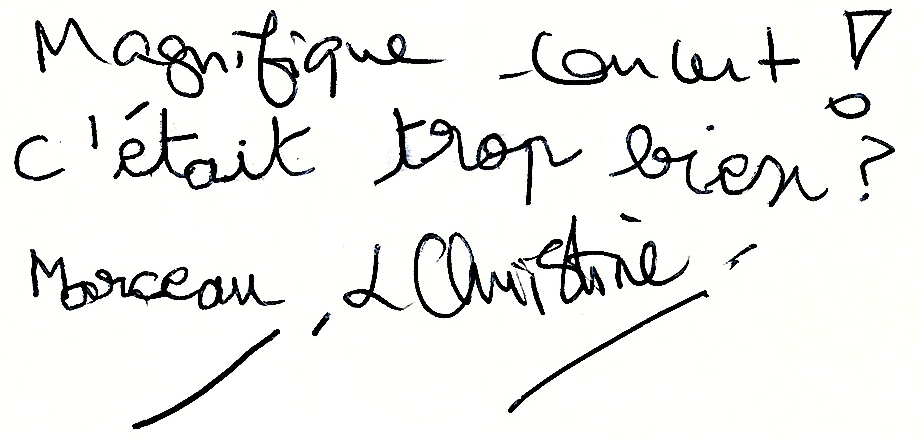 Magnifique concert !
c'était trop bien ?
Morceau, L Christine.